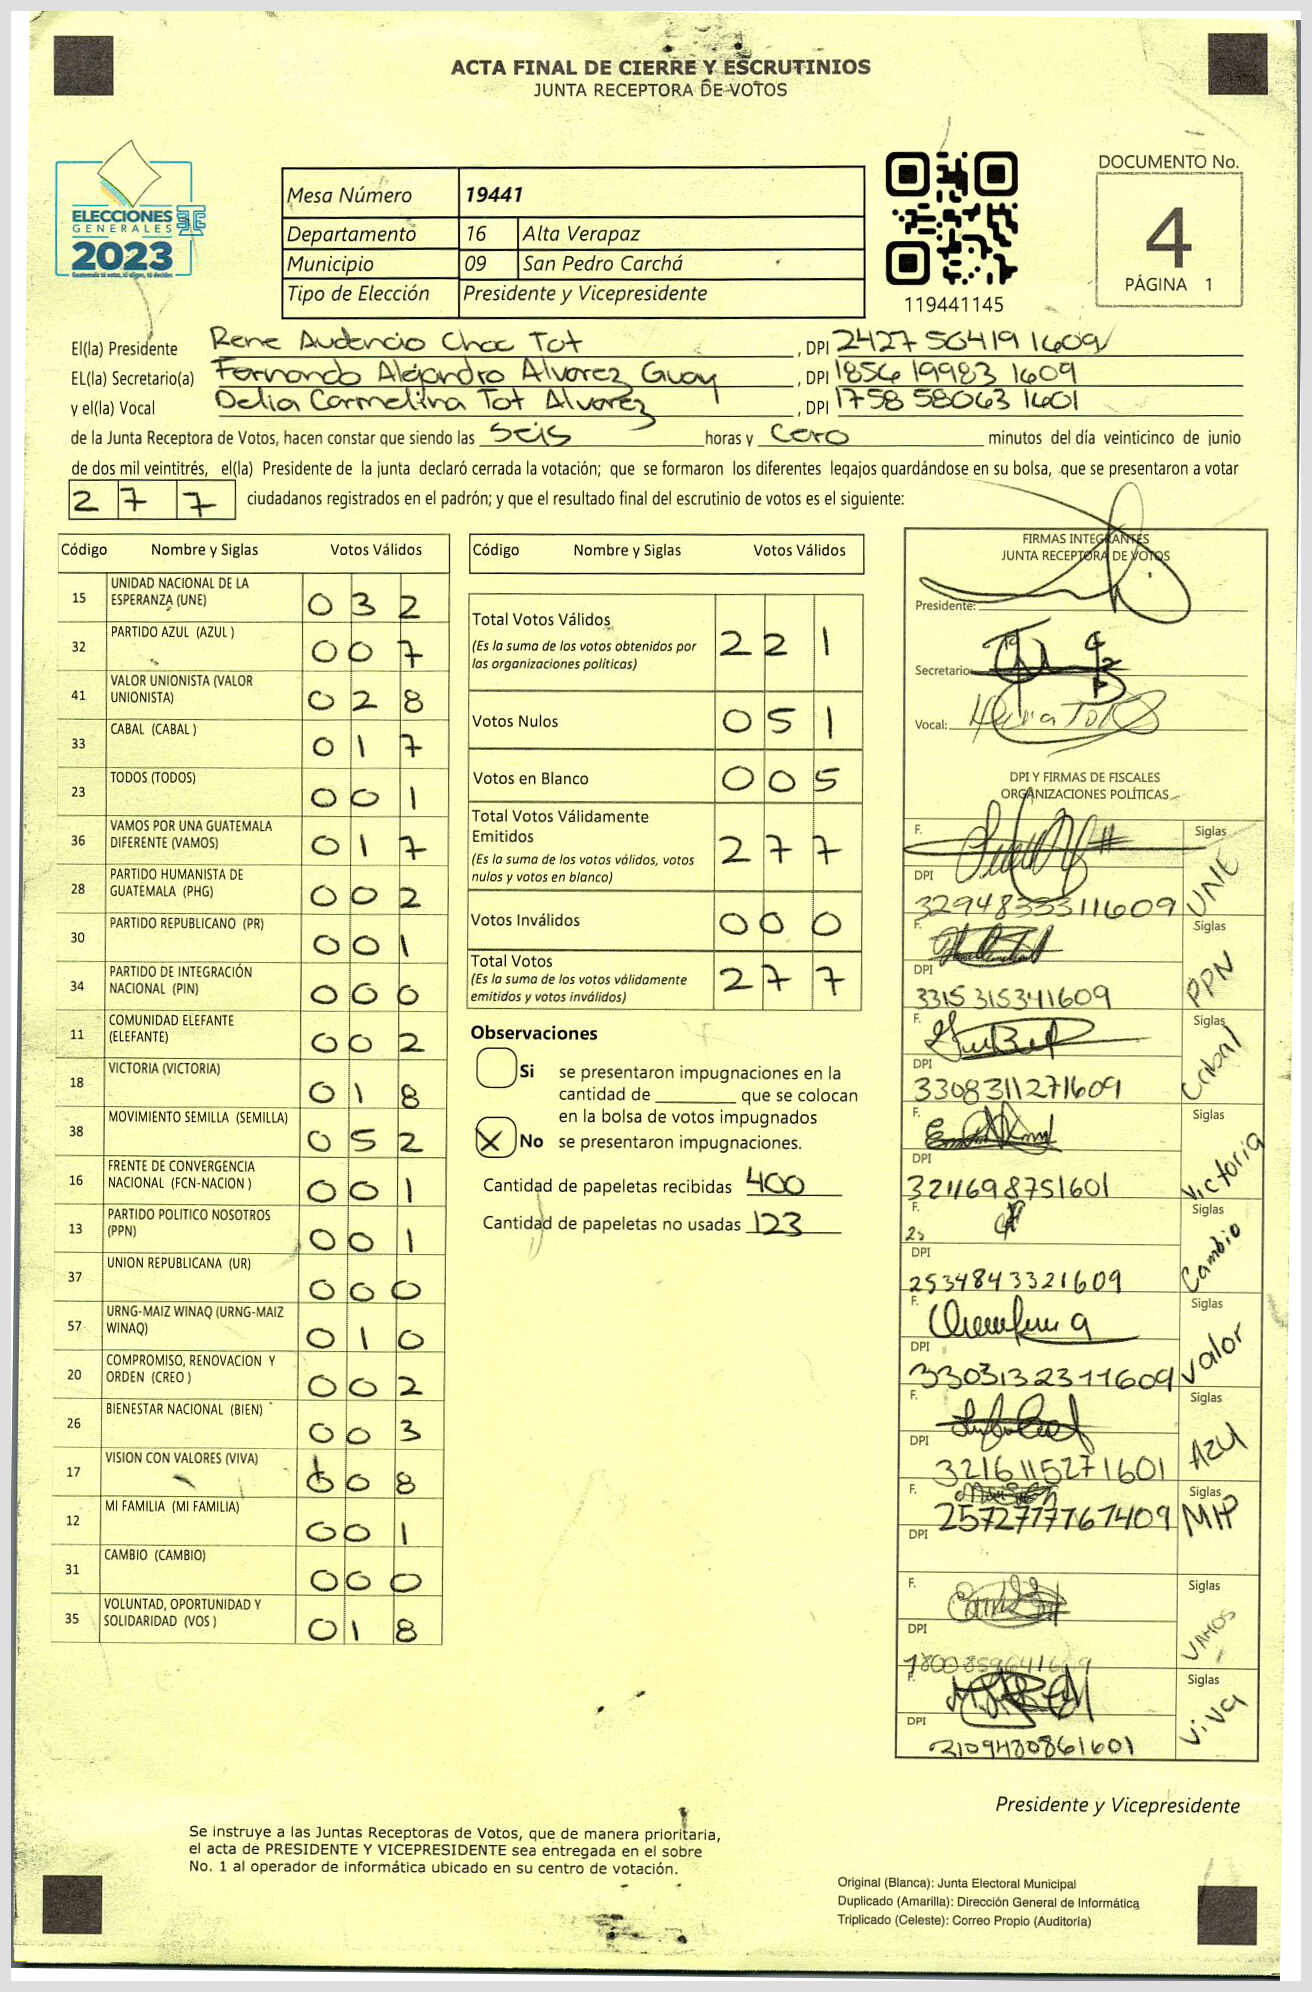 ACTA FINAL DE CIERRE Y ESCRUTINIOS
JUNTA RECEPTORA DE VOTOS
ELECCIONES
GENERALES
2023
Guatemala tú votas, tú eliges, tú decides
Mesa Número 19441
Departamento 16 Alta Verapaz
Municipio 09 San Pedro Carchá
Tipo de Elección Presidente y Vicepresidente
119441145
DOCUMENTO No.
4
PÁGINA 1
El(la) Presidente Rene Audencio Choc Tot , DPI 2427 56419 1609
EL(la) Secretario(a) Fernando Alejandro Alvarez Guay , DPI 1856 19983 1609
y el(la) Vocal Delia Carmelina Tot Alvarez , DPI 1758 58063 1601
de la Junta Receptora de Votos, hacen constar que siendo las Seis horas y Cero minutos del día veinticinco de junio
de dos mil veintitrés, el(la) Presidente de la junta declaró cerrada la votación; que se formaron los diferentes legajos guardándose en su bolsa, que se presentaron a votar
277 ciudadanos registrados en el padrón; y que el resultado final del escrutinio de votos es el siguiente:
Código Nombre y Siglas Votos Válidos
15 UNIDAD NACIONAL DE LA
ESPERANZA (UNE) 032
32 PARTIDO AZUL (AZUL ) 007
41 VALOR UNIONISTA (VALOR
UNIONISTA) 028
33 CABAL (CABAL ) 017
23 TODOS (TODOS) 001
36 VAMOS POR UNA GUATEMALA
DIFERENTE (VAMOS) 017
28 PARTIDO HUMANISTA DE
GUATEMALA (PHG) 002
30 PARTIDO REPUBLICANO (PR) 001
34 PARTIDO DE INTEGRACIÓN
NACIONAL (PIN) 000
11 COMUNIDAD ELEFANTE
(ELEFANTE) 002
18 VICTORIA (VICTORIA) 018
38 MOVIMIENTO SEMILLA (SEMILLA) 052
16 FRENTE DE CONVERGENCIA
NACIONAL (FCN-NACION ) 001
13 PARTIDO POLITICO NOSOTROS
(PPN) 001
37 UNION REPUBLICANA (UR) 000
57 URNG-MAIZ WINAQ (URNG-MAIZ
WINAQ) 010
20 COMPROMISO, RENOVACION Y
ORDEN (CREO ) 002
26 BIENESTAR NACIONAL (BIEN) 003
17 VISION CON VALORES (VIVA) 008
12 MI FAMILIA (MI FAMILIA) 001
31 CAMBIO (CAMBIO) 000
35 VOLUNTAD, OPORTUNIDAD Y
SOLIDARIDAD (VOS ) 018
Código Nombre y Siglas Votos Válidos
Total Votos Válidos 221
(Es la suma de los votos obtenidos por
las organizaciones políticas)
Votos Nulos 051
Votos en Blanco 005
Total Votos Válidamente
Emitidos 277
(Es la suma de los votos válidos, votos
nulos y votos en blanco)
Votos Inválidos 000
Total Votos 277
(Es la suma de los votos válidamente
emitidos y votos inválidos)
Observaciones
Si se presentaron impugnaciones en la
cantidad de ________ que se colocan
en la bolsa de votos impugnados
X No se presentaron impugnaciones.
Cantidad de papeletas recibidas 400
Cantidad de papeletas no usadas 123
FIRMAS INTEGRANTES
JUNTA RECEPTORA DE VOTOS
Presidente:
Secretario:
Vocal:
DPI Y FIRMAS DE FISCALES
ORGANIZACIONES POLÍTICAS
F. Siglas
DPI 3294833311609 UNE
F. Siglas
DPI 3315315341609 PPN
F. Siglas
DPI 3308311271609 Cabal
F. Siglas
DPI 3211698751601 Victoria
F. Siglas
DPI 2534843321609 Cambio
F. Siglas
DPI 3303132311609 Valor
F. Siglas
DPI 3216115271601 AZUl
F. Siglas
DPI 2572777761409
F. Siglas
DPI VAMOS
F. Siglas
DPI 2109480861601 Viva
Presidente y Vicepresidente
Se instruye a las Juntas Receptoras de Votos, que de manera prioritaria,
el acta de PRESIDENTE Y VICEPRESIDENTE sea entregada en el sobre
No. 1 al operador de informática ubicado en su centro de votación.
Original (Blanca): Junta Electoral Municipal
Duplicado (Amarilla): Dirección General de Informática
Triplicado (Celeste): Correo Propio (Auditoría)